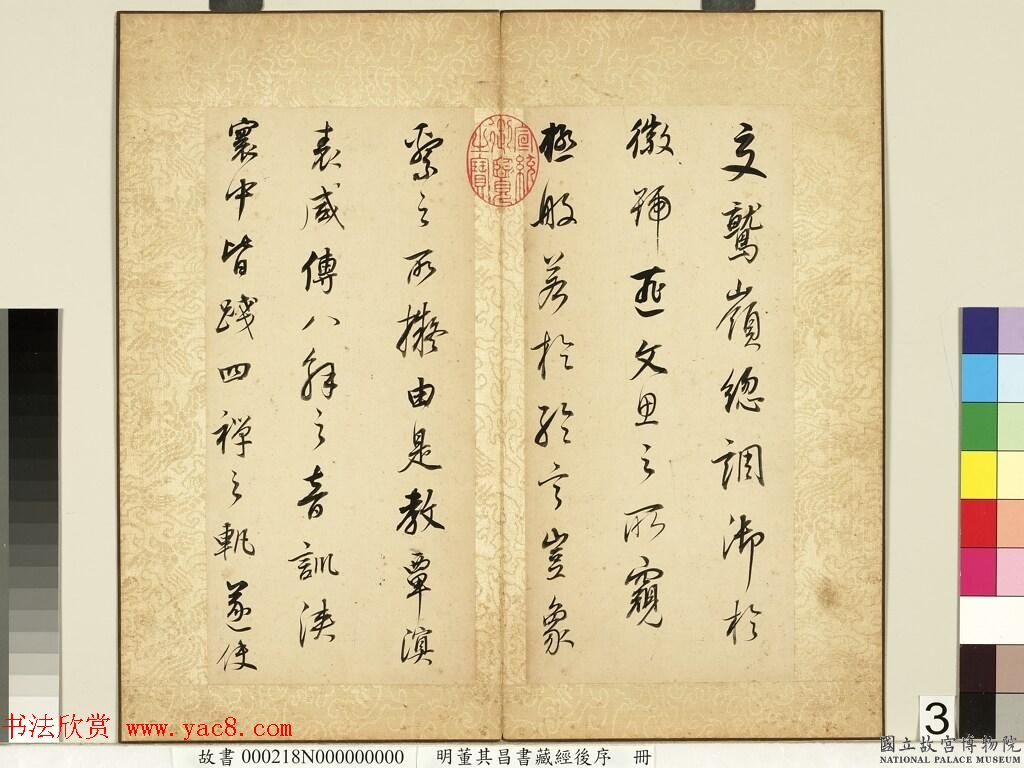 交鷲嶺總調御於
徽號匪文思之所窺
極般若於綸言豈象
繫之所擬由是教覃溟
表咸傳八解之音訓浹
寰中皆踐四禪之軌遂使
宣統御覽之寶
3
書法欣赏 www.yac8.com
故書 000218N000000000 明董其昌書藏經後序 冊
國立故宮博物院
NATIONAL PALACE MUSEUM